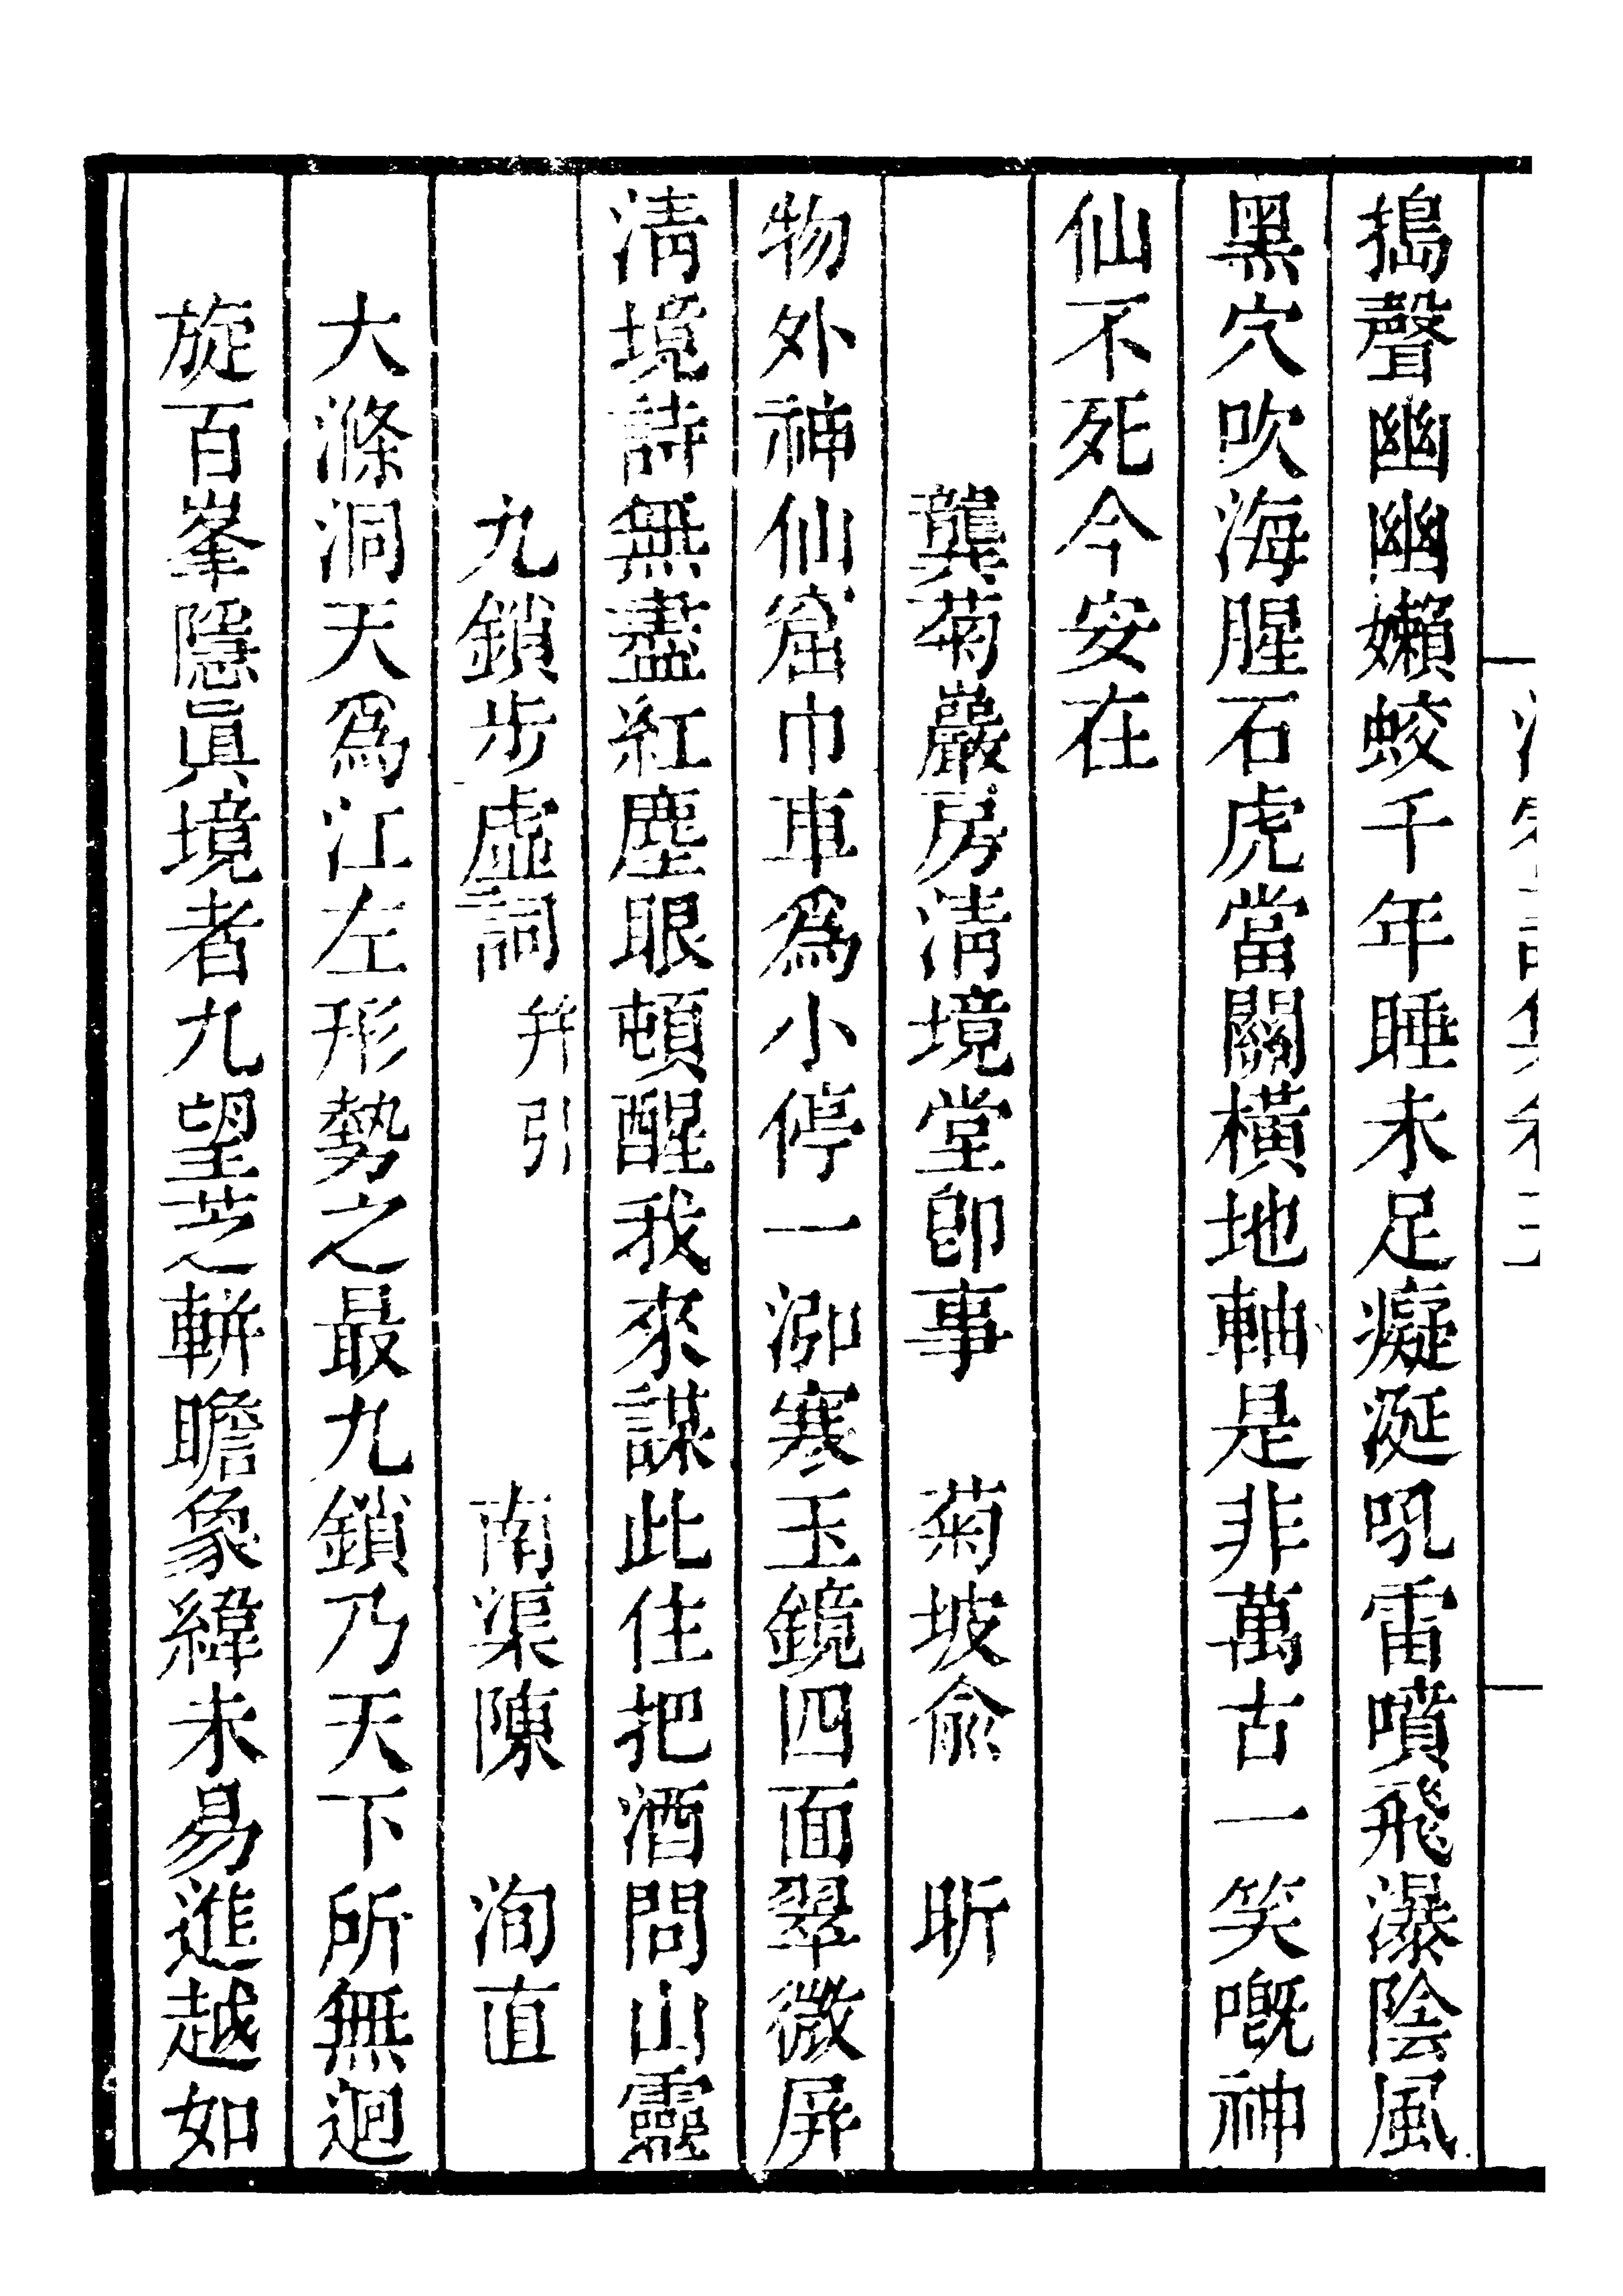 搗聲幽幽嬾蛟千年睡未足癡涎吼雷噴飛瀑陰風
黑穴吹海腥石虎當關橫地軸是非萬古一笑嘅神
仙不死今安在
龔菊巖房清境堂卽事　菊坡俞　昕
物外神仙窟巾車爲小停一泓寒玉鏡四面翠微屏
清境詩無盡紅塵眼頓醒我來謀此住把酒問山靈
九鎖步虛詞并引　南渠陳　洵直
大滌洞天爲江左形勢之最九鎖乃天下所無迴
旋百峯隱眞境者九望芝輧瞻象緯未易進越如